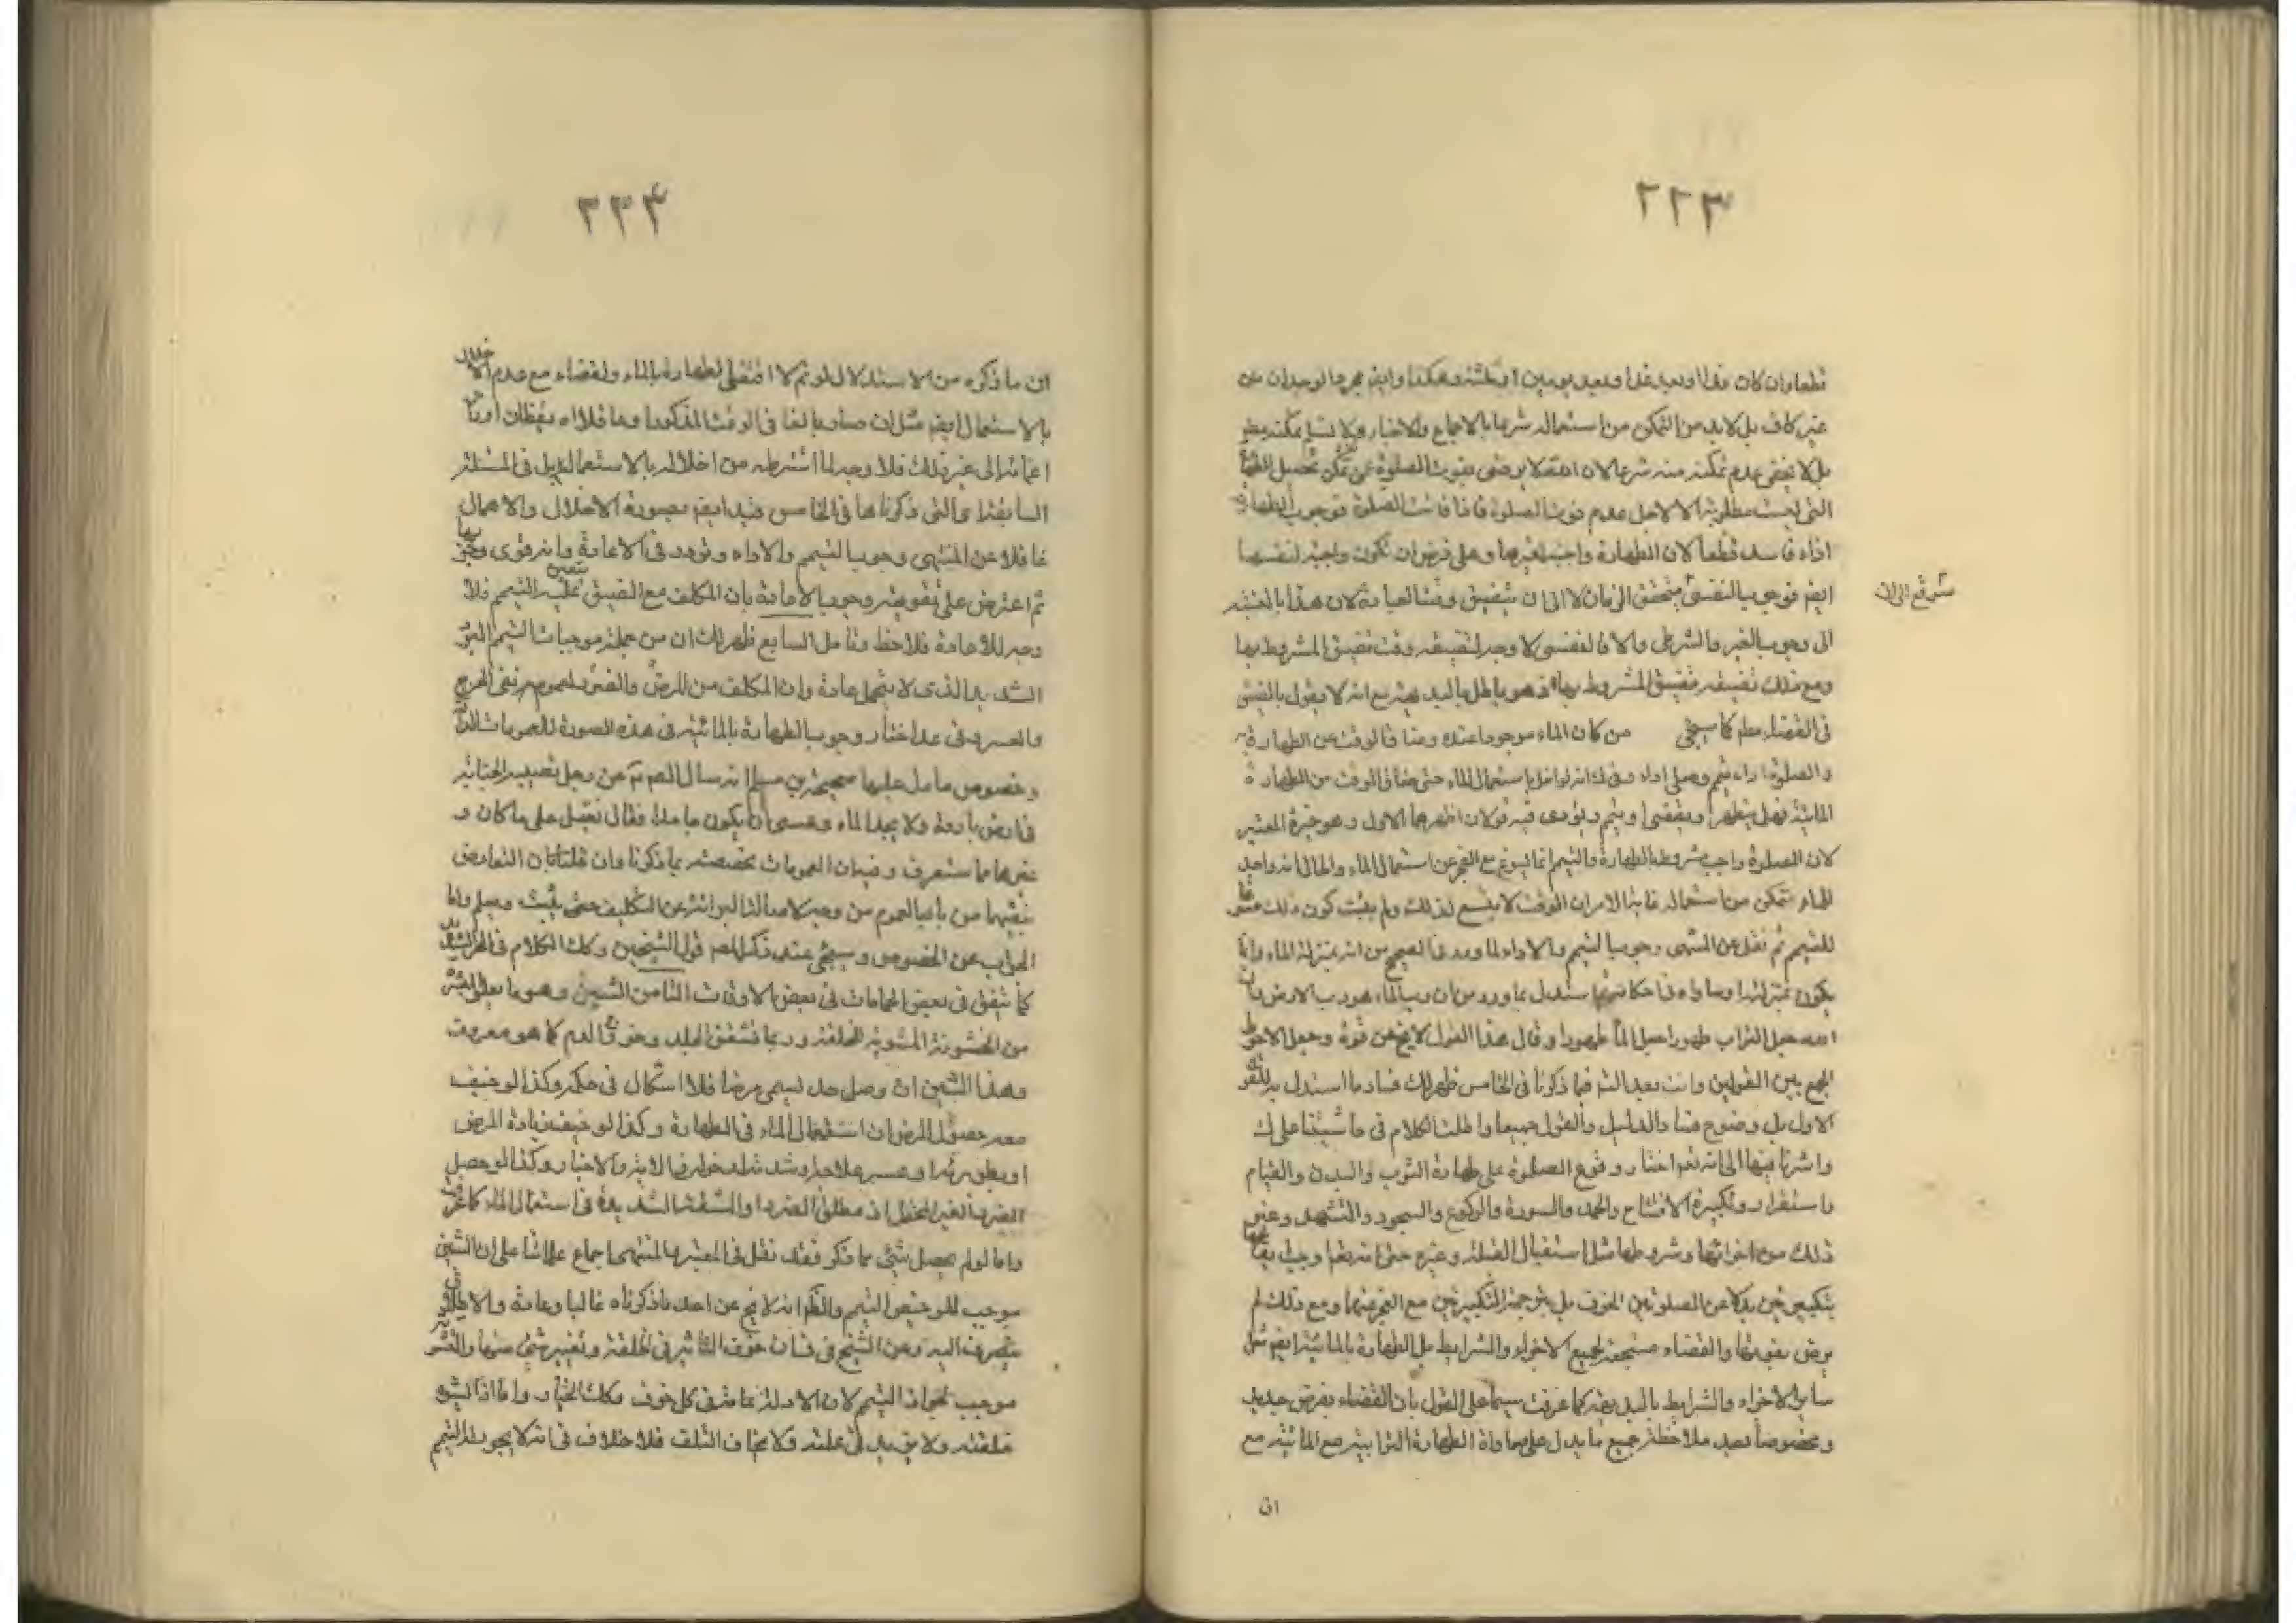 ٢٢٣
قطعا وان كان غدا او بعد غد او بعد يومين او ثلثة وهكذا وايضا مجرد الوجدان
غير كاف بل لا بد من التمكن من استعماله شرعا بالاجماع والاخبار ولا نسلم تمكنه
بل لا يخفى عدم تمكنه منه شرعا لان الله لا يرضى بفوت الصلوة عن تمكن تحصيل
التي ليست مطلوبة الا لاجل عدم فوت الصلوة فاذا فاتت الصلوة فوجوب الطهارة
اذا فاسد قطعا لان الطهارة واجبة لغيرها وعلى فرض ان تكون واجبة لنفسها
ايضا فوجوبها النفسي يتحقق الزمان لا الى ان يتضيق وقت العبادة لان هذا بالنسبة
الى وجوبها الغير والشرطي والا فالنفسي لا وجه لتضيقه وقت تضيق المشروط بها
ومع ذلك تضيقه بتضيق المشروط بها فهو باطل بالبديهة مع انه لا يقول بالضيق
في القضاء كما سيجئ من كان الماء موجودا عنده وضاق الوقت عن الطهارة
والصلوة اداء تيمم وصلى اداء وفي ك انه لو اخل باستعمال الماء حتى ضاق الوقت من الطهارة
المائية فهل يتطهر ويقضي او يتيمم ويؤدى فيه قولان اظهرهما الاول وهو خيرة المعتبر
لان الصلوة واجب مشروط بالطهارة والتيمم انما يسوغ مع العجز عن استعمال الماء والحال انه واجد
للماء متمكن من استعماله غاية الامر ان الوقت لا يتسع لذلك ولم يثبت كون ذلك مسوغا
للتيمم ثم نقل عن المنتهى وجوب التيمم والاداء لما ورد في الصحيح من انه بمنزلة الماء وانما
يكون بمنزلته لو ساواه في احكامه ثم استدل بما ورد من ان رب الماء هو رب الارض وان
الله جعل التراب طهورا كما جعل الماء طهورا وقال هذا القول لا يخ عن قوة وجعل الاحوط
الجمع بين القولين وانت بعد التأمل فيما ذكرنا في الخامس ظهر لك فساد ما استدل به للقول
الاول بل وضوح فساد الدليل والقول جميعا واطلت الكلام في حاشيتنا على ك
واشرنا فيها الى انه تعالى اختار وقوع الصلوة على طهارة الثوب والبدن والقيام
واستقرار وتكبيرة الافتتاح والحمد والسورة والركوع والسجود والتشهد وغير
ذلك من اجزائها وشروطها مثل استقبال القبلة وغيره حتى انه تعالى وجب
بتكبيرتين بدلا عن الصلوتين الخوف بل بترجمة التكبيرتين مع العجز عنهما ومع ذلك لم
يرض بفوتها والقضاء مستجمعة لجميع الاجزاء والشرايط بل الطهارة بالمائية ايضا مثل
ساير الاجزاء والشرايط بالبديهة كما عرفت سيما على القول بان القضاء بفرض جديد
وخصوصا بعد ملاحظة جميع ما يدل على مساواة الطهارة الترابية مع المائية مع
ان
٢٢٤
ان ما ذكره من الاستدلال لو تم لاقتضى الطهارة بالماء والقضاء مع عدم الاخلال
بالاستعمال ايضا مثل ان صار بالغا في الوقت المذكور او عاقلا او يقظان او
الى غير ذلك فلا وجه لما اشترطه من اخلاله بالاستعمال بل في المسئلة
السابقة اى التي ذكرناها في الخامس قيد ايضا بصورة الاخلال والاهمال
ناقلا عن المنتهى وجوب التيمم والاداء وتردد في الاعادة وانه قوى
ثم اعترض على تقويته وجوب الاعادة بان المكلف مع الضيق يتعين عليه التيمم فلا
وجه للاعادة فلاحظ وتامل السابع ظهر لك ان من جملة موجبات التيمم البرد
الشديد الذى لا يتحمل عادة وان المكلف من المرض والضرر لعموم نفى الحرج
والعسر وفي عد اختار وجوب الطهارة بالمائية في هذه الصورة للعمومات
وخصوص ما دل عليها صحيحة بن مسلم انه سال الصادق عن رجل تصيبه الجنابة
في ارض باردة ولا يجد الماء وعسى ان يكون جامدا فقال يغتسل على ما كان و
غيرها مما ستعرف وفيه ان العمومات مخصصة بما ذكرنا وان قلنا بان التعارض
بينهما من باب العموم من وجه لاصالة البرائة عن التكليف حتى يثبت ويعلم واما
الجواب عن الخصوص وسيجئ عند ذكر المصنف قول الشيخين وكذا الكلام في الحر الشديد
كما يتفق في بعض الحمامات في بعض الاوقات الثامن الشين وهو ما يعلو البشرة
من الخشونة المشوهة للخلقة وربما تشقق الجلد وخروج الدم كما هو معروف
وهذا الشين ان وصل حد يسمى مرضا فلا اشكال في حكمه وكذا لو خيف
معه حصول المرض ان استعمال الماء في الطهارة وكذا لو خيف زيادة المرض
او بطؤ برئه او عسر علاجه او شدته لدخوله في الاية والاخبار وكذا لو حصل
الضرر الغير المتحمل اذ مطلق الضرر او المشقة الشديدة في استعمال الماء كما عرفت
واما لو لم يحصل شئ مما ذكر فقد نقل في المعتبر والمنتهى اجماع علمائنا على ان الشين
موجب للترخيص التيمم والظاهر انه لا يخ عن احد ما ذكرناه غالبا وعادة والاطلاق
ينصرف اليه وعن الشيخ في ف ان خوف التأثير في الخلقة وتغيير شئ منها والتشويه
موجب لجواز التيمم لان الادلة عامة في كل خوف وكذا الاخبار واما اذا لم يشوه
خلقته ولا يزيد في علته ولا يخاف التلف فلا خلاف في انه لا يجوز له التيمم